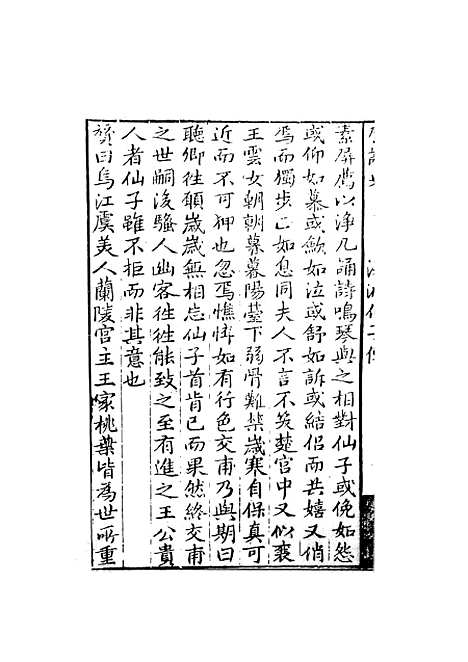 素屏薦以淨几誦詩鳴琴與之相對仙子或俛如怨
或仰如慕或歛如泣或舒如訴或結侣而共嬉又俏
焉而獨步亡如息同夫人不言不笑楚宫中又似襄
王雲女朝朝暮暮陽臺下弱骨難禁歲寒自保真可
近而不可狎也忽焉憔悴如有行色交甫乃與期曰
聽卿徃願歲歲無相忘仙子首肯已而果然終交甫
之世嗣後騷人幽客徃徃能致之至有進之王公貴
人者仙子雖不拒而非其意也
贊曰烏江虞美人蘭陵宫主王家桃葉皆為世所重